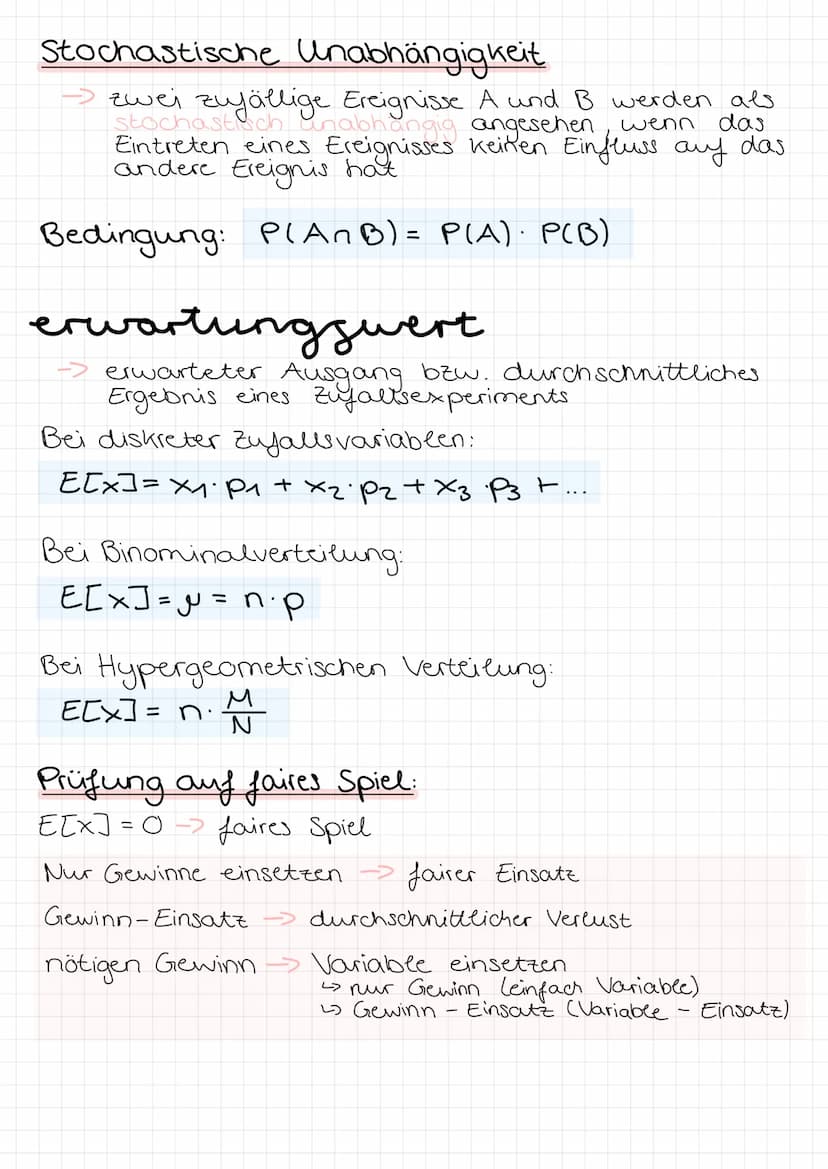 Stochastische Unabhängigkeit
→ zwei zufällige Ereignisse A und B werden als
stochastisch unabhängig angesehen, wenn das
Eintreten eines Ereignisses keinen Einfluss auf das
andere Ereignis hat
Bedingung: P(A∩B) = P(A) · P(B)
erwartungswert
→ erwarteter Ausgang bzw. durchschnittliches
Ergebnis eines Zufallsexperiments
Bei diskreter Zufallsvariablen:
E[x] = x₁·p₁ + x₂·p₂ + x₃·p₃ + ...
Bei Binominalverteilung:
E[x] = μ = n·p
Bei Hypergeometrischen Verteilung:
E[x] = n · M/N
Prüfung auf faires Spiel:
E[x] = 0 → faires Spiel
Nur Gewinne einsetzen → fairer Einsatz
Gewinn-Einsatz → durchschnittlicher Verlust
nötigen Gewinn → Variable einsetzen
↳ nur Gewinn (einfach Variable)
↳ Gewinn - Einsatz (Variable - Einsatz)